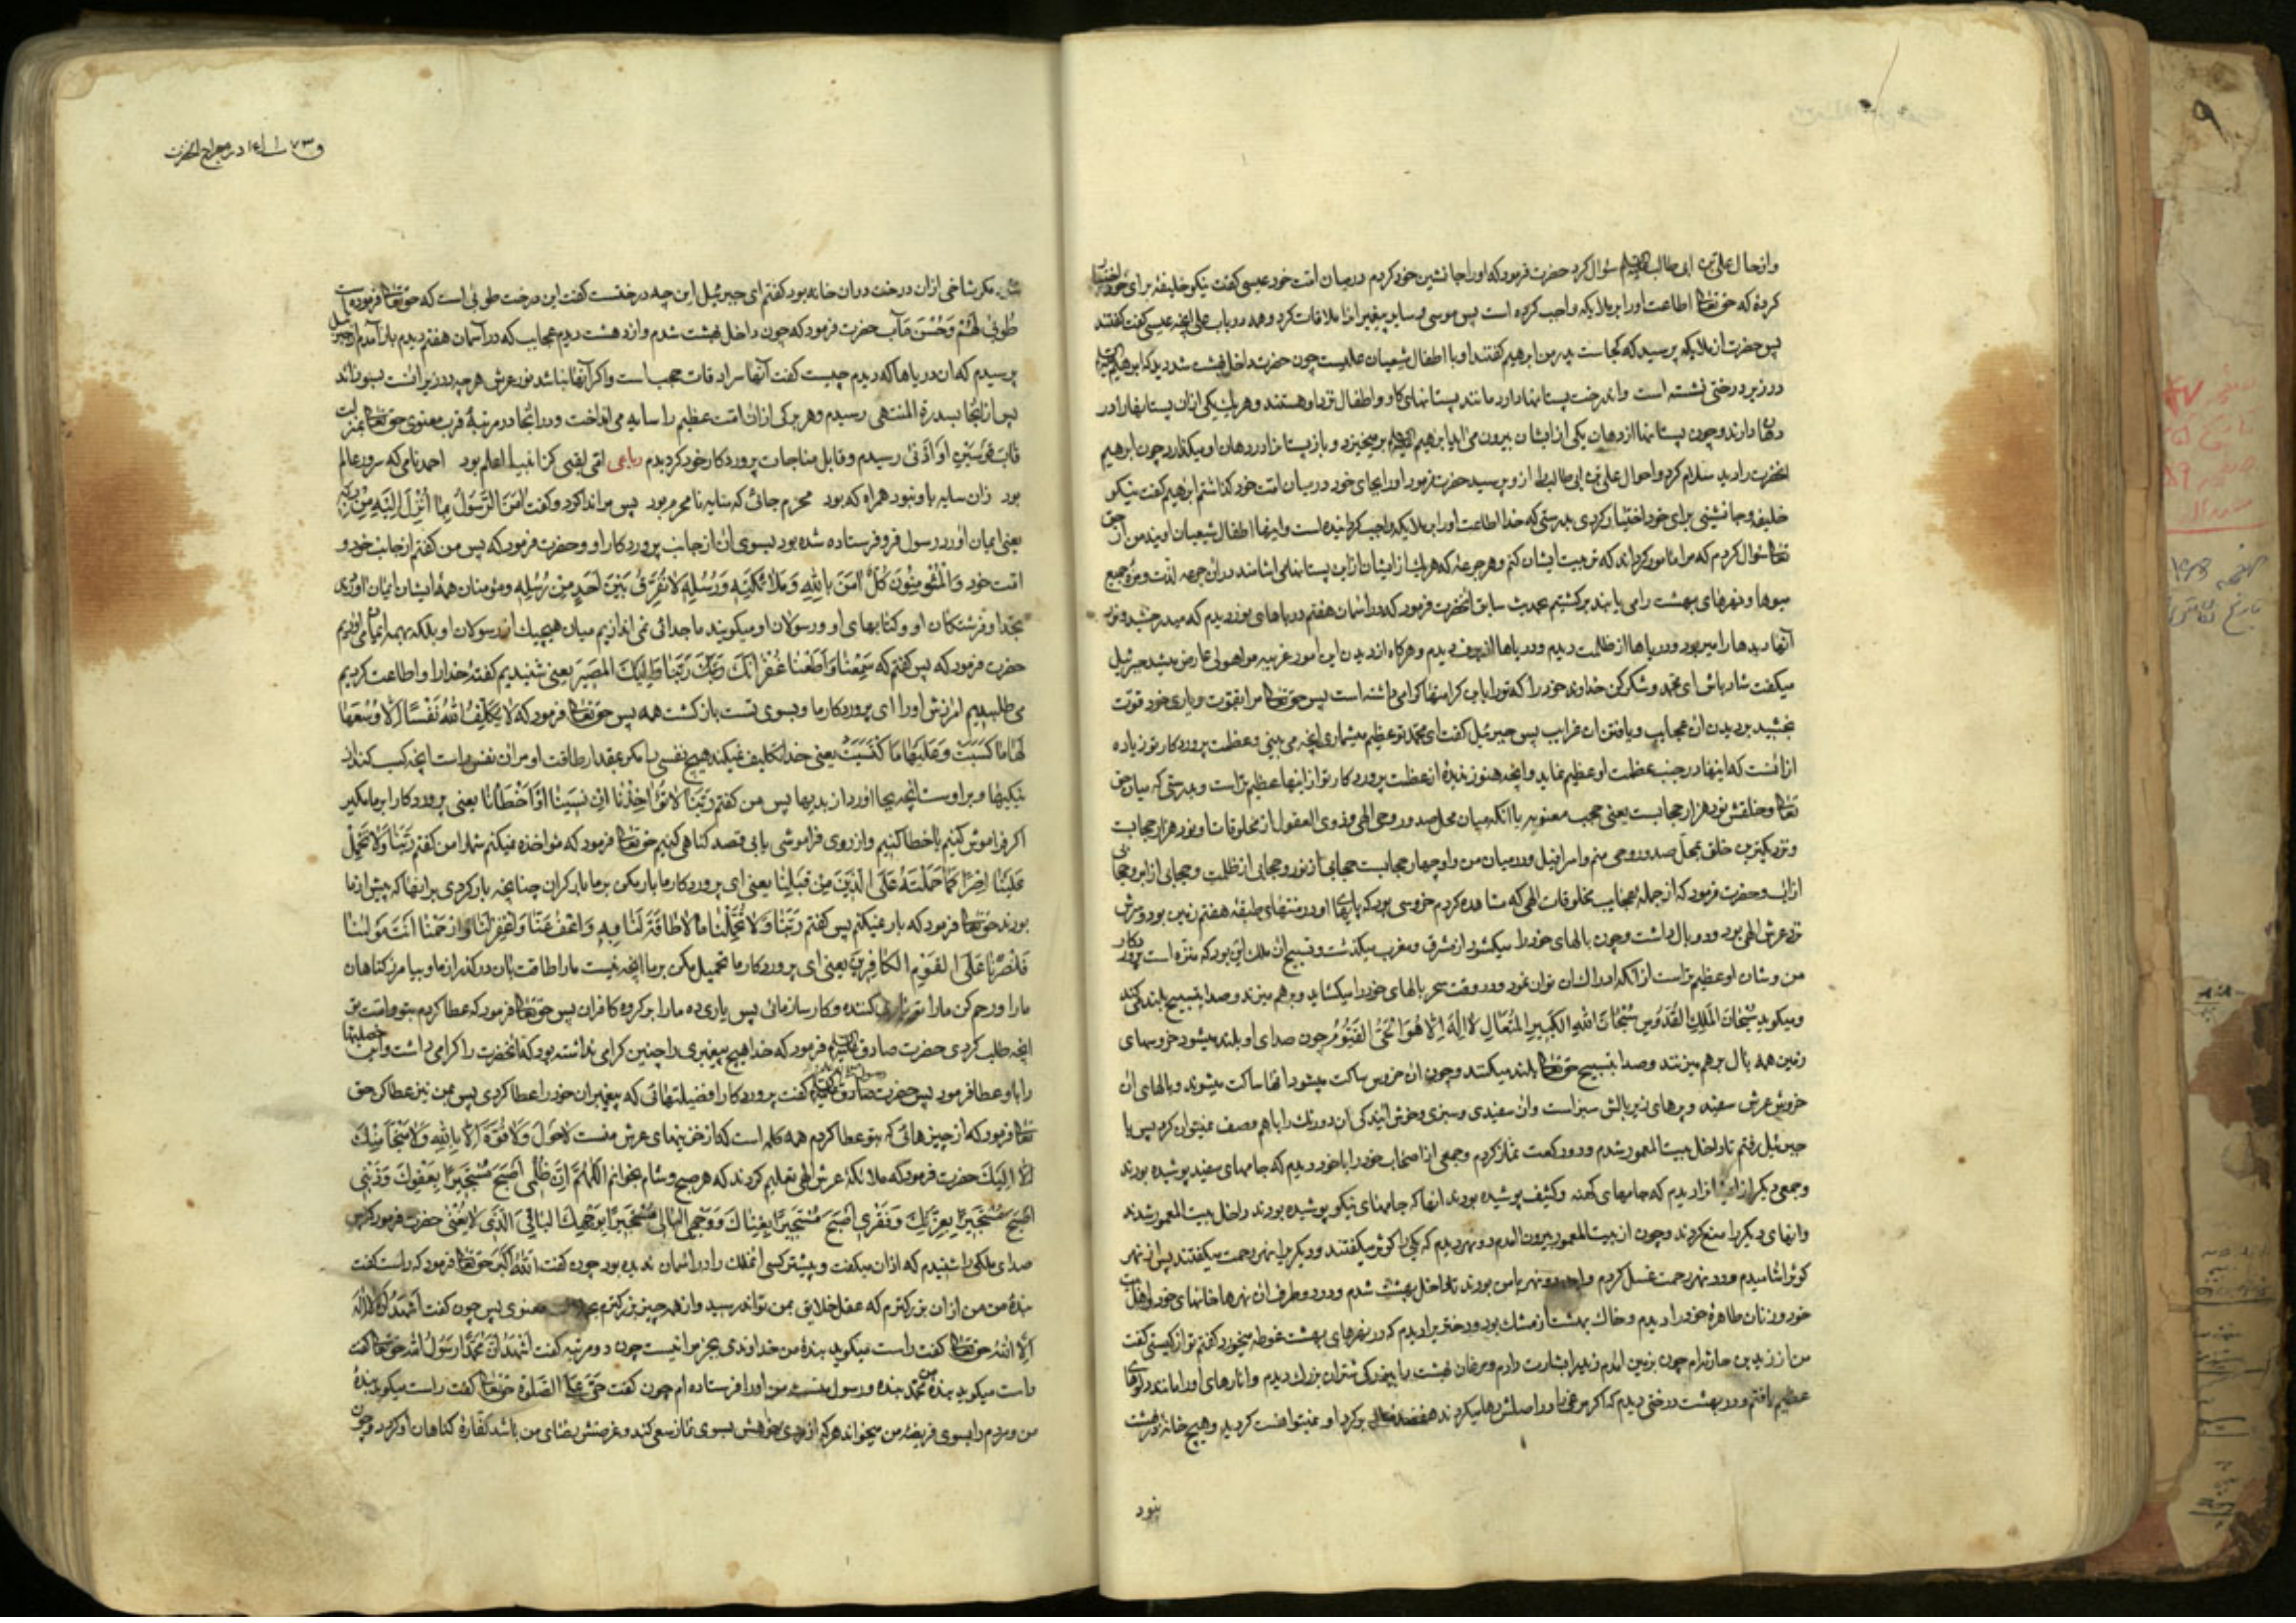 و از حال علی بن ابی طالب سؤال کرد حضرت فرمود که او را جانشین خود کردم در میان امت خود عیسی کفت نیکو خلیفهٔ برای خود اختیار
کردهٔ که حق تعالی اطاعت او را بر ملایکه واجب کرده است پس موسی و سایر پیغمبرانرا ملاقات کرد و همه در باب علی انچه عیسی کفت کفتند
پس حضرت از ملایکه پرسید که کجاست پدر من ابرهیم کفتند او با اطفال شیعیان علیست چون حضرت داخل بهشت شد دید که ابرهیم
در زیر درختی نشسته است و اندرخت پستانها دارد مانند پستانهای کاو و اطفال نزد او هستند و هر یک یکی از ان پستانها را در
دهان دارند و چون پستانها از دهان یکی از ایشان بیرون می اید ابرهیم برمیخیزد و باز پستانرا در دهان او میکذارد چون ابرهیم
انحضرت را دید سلام کرد و احوال علی بن ابی طالب را از و پرسید حضرت فرمود او را بجای خود در میان امت خود کذاشتم ابرهیم کفت نیکو
خلیفه و جانشینی برای خود اختیار کردی بدرستی که خدا اطاعت او را بر ملایکه واجب کردانیده است و اینها اطفال شیعیان اویند من از حق
تعالی سؤال کردم که مرا مامور کرداند که تربیت ایشان کنم و هر جرعه که هر یک از ایشان از این پستانها می اشامند در ان جرعه لذت و مزهٔ جمیع
میوها و نهرهای بهشت را می یابند برکشتیم بحدیث سابق انحضرت فرمود که در اسمان هفتم دریاهای نور دیدم که میدرخشید و نور
آنها دیدها را میربود و دریاها از ظلمت دیدم و دریاها از برف دیدم و هرکاه از دیدن این امور غریبه مرا هولی عارض میشد جبرئیل
میکفت شاد باش ای محمد و شکر کن خداوند خود را که تو را باین کرامتها کرامی داشته است پس حق تعالی مرا بقوت و یاری خود قوت
بخشید بر دیدن ان عجایب و یافتن ان غرایب پس جبرئیل کفت ای محمد تو عظیم میشماری انچه می بینی و عظمت پروردکار تو زیاده
از انست که اینها در جنب عظمت او عظیم نماید و انچه هنوز ندیدهٔ از عظمت پروردکار تو از اینها عظیم تر است و بدرستی که میان حق
تعالی و خلقش نود هزار حجابست یعنی حجب معنویه یا انکه میان محل صدور وحی الهی و ذوی العقول از مخلوقات او نود هزار حجابست
و نزدیکترین خلق بمحل صدور وحی منم و اسرافیل و در میان من و او چهار حجابست حجابی از نور و حجابی از ظلمت و حجابی از ابر و حجابی
از اب و حضرت فرمود که از جمله عجایب مخلوقات الهی که مشاهده کردم خروسی بود که پاهای او در منتهای طبقهٔ هفتم زمین بود و سرش
نزد عرش الهی بود و دو بال داشت و چون بالهای خود را میکشود از مشرق و مغرب میکذشت و تسبیح ان ملک این بود که منزه است پروردکار
من و شان او عظیم تر است از انکه ادراک ان توان نمود و در وقت سحر بالهای خود را میکشاید و برهم میزند و صدا بتسبیح بلند میکند
و میکوید سُبْحَانَ الْمَلِكِ الْقُدُّوسِ سُبْحَانَ اللهِ الْكَبِيرِ الْمُتَعَالِ لَا اِلٰهَ اِلَّا هُوَ الْحَىُّ الْقَيُّومُ چون صدای او بلند میشود خروسهای
زمین همه بال برهم میزنند و صدا بتسبیح حق تعالی بلند میکنند و چون ان خروس ساکت میشود انها ساکت میشوند و بالهای ان
خروس عرش سفید و پرهای زیر بالش سبز است و ان سفیدی و سبزی و خوش ایندکی ان دو رنک را باهم وصف نمیتوان کرد پس با
جبرئیل رفتم تا داخل بیت المعمور شدم و دو رکعت نماز کردم و جمعی از اصحاب خود را با خود دیدم که جامهای سفید پوشیده بودند
و جمعی دیکر از ایشانرا دیدم که جامهای کهنه و کثیف پوشیده بودند انها که جامهای نیکو پوشیده بودند داخل بیت المعمور شدند
و انهای دیکر را منع کردند و چون از بیت المعمور بیرون امدم دو نهر دیدم که یکی را کوثر میکفتند و دیکر یرا نهر رحمت میکفتند پس از نهر
کوثر اشامیدم و در نهر رحمت غسل کردم و ان دو نهر با من بودند تا داخل بهشت شدم و در دو طرف ان نهرها خانهای خود و اهل بیت
خود و زنان طاهرهٔ خود را دیدم و خاک بهشت از مشک بود و دختریرا دیدم که در نهرهای بهشت غوطه میخورد کفتم تو از کیستی کفت
من از زید بن حارثه ام چون بزمین امدم زید را بشارت دادم و مرغان بهشت را ببزرکی شتران بزرک دیدم و انارهای او را مانند دلوهای
عظیم یافتم و در بهشت درختی دیدم که اکر مرغی را در اصلش رها میکردند هفتصد سال بر کرد او نمیتوانست کردید و هیچ خانهٔ در بهشت
نبود
و ۷۳ ب ۱۲۴ در معراج انحضرت
مکر شاخی از ان درخت در ان خانه بود کفتم ای جبرئیل این چه درختست کفت این درخت طوبی است که حق تعالی فرموده است
طُوبىٰ لَهُمْ وَحُسْنُ مَآبٍ حضرت فرمود که چون داخل بهشت شدم و از دهشت دیدم عجایب که در آسمان هفتم دیدم باز آمدم از جبرئیل
پرسیدم که ان دریاها که دیدم چیست کفت آنها سرادقات حجب است و اکر آنها نباشد نور عرش هرچه در زیر انست بسوزاند
پس از انجا بسدرة المنتهی رسیدم و هر برکی از ان امت عظیم را سایه می انداخت و در انجا در مرتبهٔ قرب معنوی حق تعالی بمنزلت
قَابَ قَوْسَيْنِ اَوْ اَدْنىٰ رسیدم و قابل مناجات پروردکار خود کردیدم رباعی امی لقبی کز انبیا اعلم بود احمد نامی که سرور عالم
بود زان سایه با و نبود همراه که بود محرم جائی که سایه نامحرم بود پس مرا ندا کرد و کفت اٰمَنَ الرَّسُولُ بِمَا اُنْزِلَ اِلَيْهِ مِنْ رَبِّهِ
یعنی ایمان اورد رسول فرو فرستاده شده بود بسوی ان از جانب پروردکار او و حضرت فرمود که پس من کفتم از جانب خود و
امت خود وَالْمُؤْمِنُونَ كُلٌّ اٰمَنَ بِاللهِ وَمَلَائِكَتِهِ وَرُسُلِهِ لَا نُفَرِّقُ بَيْنَ اَحَدٍ مِنْ رُسُلِهِ و مؤمنان همهٔ ایشان ایمان اوردند
بخدا و فرشتکان او و کتابهای او و رسولان او میکویند ما جدائی نمی اندازیم میان هیچیک از رسولان او بلکه بهمه ایمان می اوریم
حضرت فرمود که پس کفتم که سَمِعْنَا وَاَطَعْنَا غُفْرَانَكَ رَبَّنَا وَاِلَيْكَ الْمَصِيرُ یعنی شنیدیم کفتهٔ خدا را و اطاعت کردیم
می طلبیم امرزش او را ای پروردکار ما و بسوی تست بازکشت همه پس حق تعالی فرمود که لَا يُكَلِّفُ اللهُ نَفْسًا اِلَّا وُسْعَهَا
لَهَا مَا كَسَبَتْ وَعَلَيْهَا مَا كْتَسَبَتْ یعنی خدا تکلیف نمیکند هیچ نفسی را مکر بمقدار طاقت او مر ان نفس راست انچه کسب کند از
نیکیها و بر اوست انچه بجا اورد از بدیها پس من کفتم رَبَّنَا لَا تُؤَاخِذْنَا اِنْ نَسِينَا اَوْ اَخْطَاْنَا یعنی پروردکارا بر ما مکیر
اکر فراموش کنیم یا خطا کنیم و از روی فراموشی یا بی قصد کناهی کنیم حق تعالی فرمود که مواخذه نمیکنم شما را من کفتم رَبَّنَا وَلَا تَحْمِلْ
عَلَيْنَا اِصْرًا كَمَا حَمَلْتَهُ عَلَى الَّذِينَ مِنْ قَبْلِنَا یعنی ای پروردکار ما بار مکن بر ما بار کران چنانچه بار کردی بر انها که پیش از ما
بودند حق تعالی فرمود که بار نمیکنم پس کفتم رَبَّنَا وَلَا تُحَمِّلْنَا مَا لَا طَاقَةَ لَنَا بِهِ وَاعْفُ عَنَّا وَاغْفِرْ لَنَا وَارْحَمْنَا اَنْتَ مَوْلٰينَا
فَانْصُرْنَا عَلَى الْقَوْمِ الْكَافِرِينَ یعنی ای پروردکار ما تحمیل مکن بر ما انچه نیست ما را طاقت بان و درکذر از ما و بیامرز کناهان
ما را و رحم کن ما را کننده و کارساز مائی پس یاری ده ما را بر کروه کافران پس حق تعالی فرمود که عطا کردم بتو و امت تو
انچه طلب کردی حضرت صادق فرمود که خدا هیچ پیغمبری را چنین کرامی نداشته بود که انحضرت را کرامی داشت و این خصلتها
را باو عطا فرمود پس حضرت کفت پروردکارا فضیلتهائی که پیغمبران خود را عطا کردی پس بمن نیز عطا کن حق
تعالی فرمود که از چیزهائی که بتو عطا کردم دو کلمه است که از خزینهای عرش منست لَا حَوْلَ وَلَا قُوَّةَ اِلَّا بِاللهِ وَلَا مَنْجَا مِنْكَ
اِلَّا اِلَيْكَ حضرت فرمود که ملائکهٔ عرش الهی تعلیم کردند که هر صبح و شام بخوانم اَللّٰهُمَّ اِنَّ ظُلْمِى اَصْبَحَ مُسْتَجِيرًا بِعَفْوِكَ وَذَنْبِى
اَصْبَحَ مُسْتَجِيرًا بِعِزَّتِكَ وَفَقْرِى اَصْبَحَ مُسْتَجِيرًا بِغِنَاكَ وَوَجْهِىَ الْبَالِى مُسْتَجِيرًا بِوَجْهِكَ الْبَاقِى الَّذِى لَا يَفْنىٰ حضرت فرمود که پس
صدای ملکی را شنیدم که اذان میکفت و پیشتر کسی انملک را در اسمان ندیده بود چون کفت اَللهُ اَكْبَرُ حق تعالی فرمود که راست کفت
بندهٔ من من از ان بزرکترم که عقل خلایق بمن تواند رسید و از همه چیز بزرکترم معنوی پس چون کفت اَشْهَدُ اَنْ لَا اِلٰهَ
اِلَّا اللهُ حق تعالی کفت راست میکوید بندهٔ من خداوندی بجز مرا نیست چون دو مرتبه کفت اَشْهَدُ اَنَّ مُحَمَّدًا رَسُولُ اللهِ حق تعالی کفت
راست میکوید بندهٔ من محمد بنده و رسول منست من او را فرستاده ام چون کفت حَىَّ عَلَى الصَّلٰوةِ حق تعالی کفت راست میکوید بندهٔ
من و مردم را بسوی فریضهٔ من میخواند هرکه از روی خواهش بسوی نماز سعی کند و غرضش رضای من باشد کفارهٔ کناهان او کردد و چون